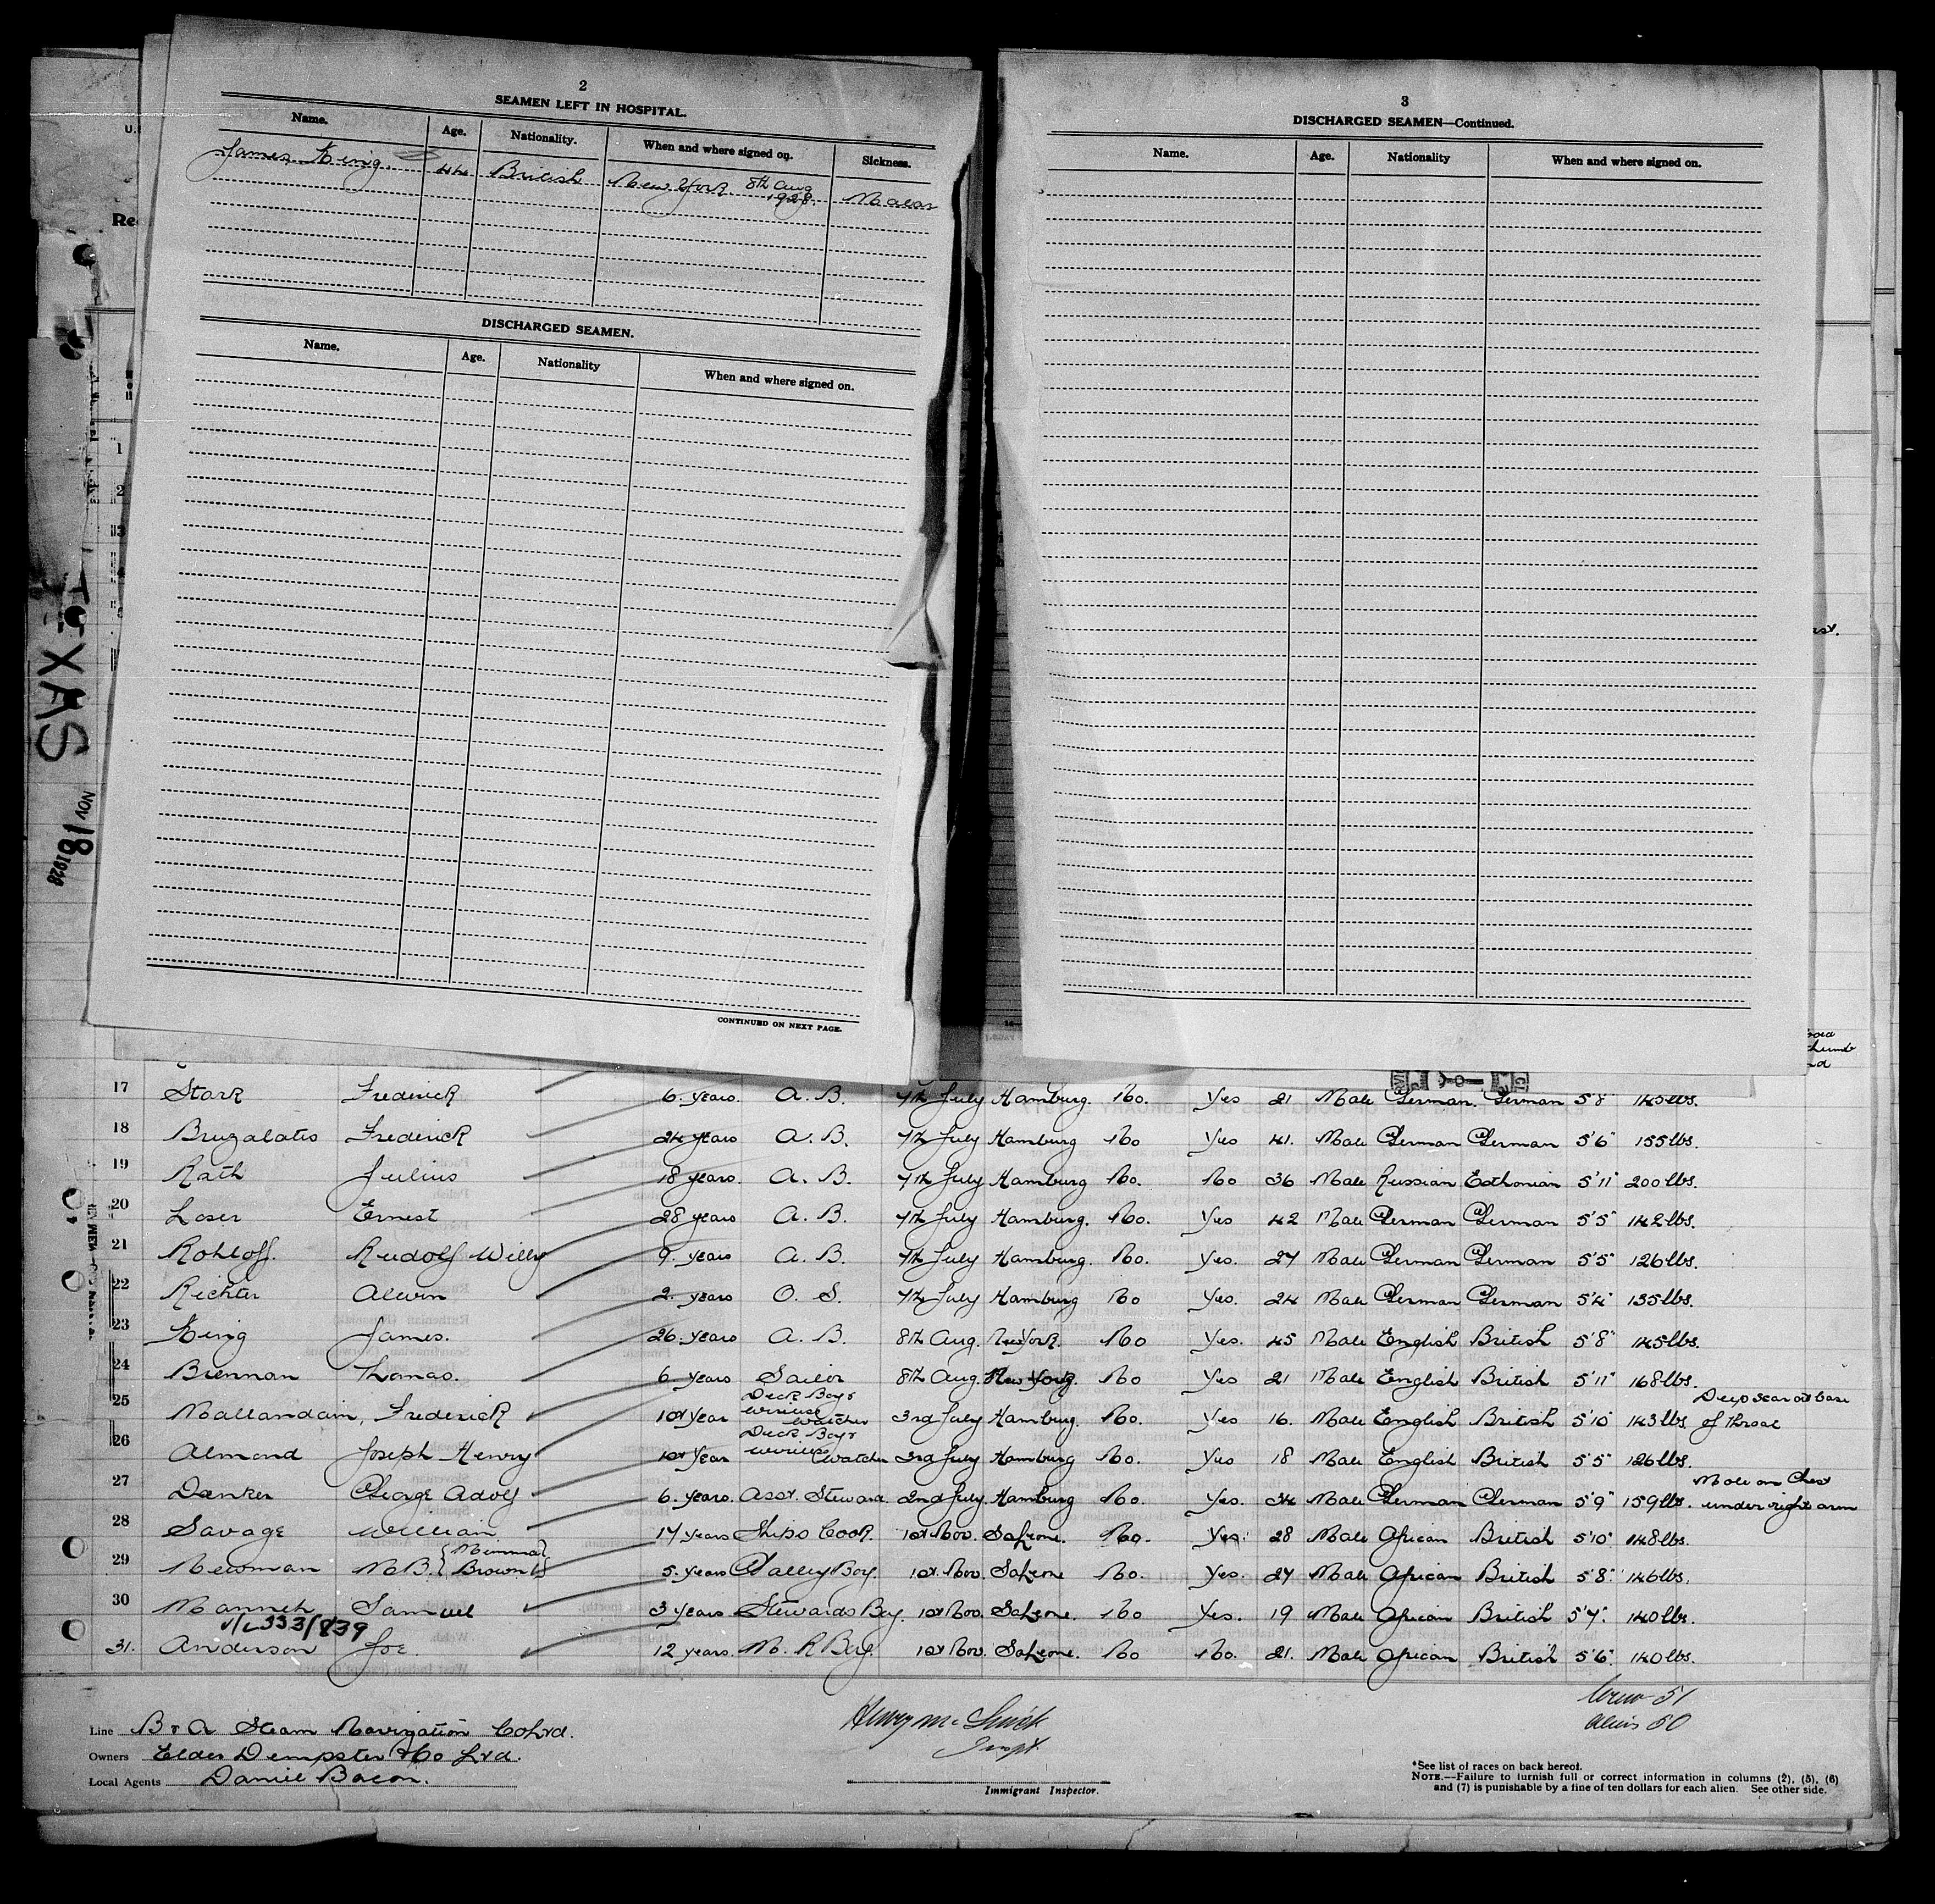 2
SEAMEN LEFT IN HOSPITAL.
Name. Age. Nationality. When and where signed on. Sickness.
James King. 44 British New York 8th Aug 1928. Malar
DISCHARGED SEAMEN.
Name. Age. Nationality When and where signed on.
CONTINUED ON NEXT PAGE.
3
DISCHARGED SEAMEN—Continued.
Name. Age. Nationality When and where signed on.
U.
Re
1
2
3
TEXAS
NOV 18 1928
17 Stark Frederick 6. years. A. B. 7th July Hamburg. No. Yes 21 Male German. German 5'8" 145lbs.
18 Bruzalatis Frederick 24 years A. B. 7th July Hamburg No Yes 41. Male German German 5'6" 155lbs.
19 Rath Julius 18 years. A. B. 7th July Hamburg No. No 36 Male Russian Esthonian 5'11" 200lbs.
20 Loser Ernest 28 years A. B. 7th July Hamburg. No. Yes 42 Male German German 5'5" 142lbs.
21 Rohloff. Rudolf Willy 9. years A. B. 7th July Hamburg. No. Yes. 27 Male German German 5'5" 126lbs.
22 Richter Alwin 2. years O. S. 7th July Hamburg No Yes. 24 Male German German 5'4" 135lbs.
23 King James. 26. years A. B. 8th Aug. New York. No Yes. 45 Male English British 5'8" 145lbs.
24 Brennan Thomas. 6 years Sailor 8th Aug. New York. No Yes 21 Male English British 5'11" 168lbs.
25 Mallandain, Frederick 1st Year Deck Boy & Wireless Watcher 3rd July Hamburg. No. Yes 16. Male English British 5'10" 143lbs. Deep scar at base of throat
26 Almond Joseph Henry 1st Year Deck Boy & Wireless Watcher 3rd July Hamburg No. Yes 18 Male English British 5'5" 126lbs.
27 Danker George Adolf 6. years. Asst. Steward 2nd July Hamburg No. Yes. 34 Male German German 5'9" 159lbs. Mole on Chest under right arm
28 Savage William 17 years Ships Cook. 1st Nov. SaLeone. No. Yes. 28 Male African British 5'10" 148lbs.
29 Newman M B. (Mimma Brown) 5. years Galley Boy. 1st. Nov. SaLeone No. Yes. 27 Male African British 5'8" 146lbs.
30 Manneh Samuel 3 years Stewards Boy. 1st Nov. SaLeone. No Yes. 19 Male African British 5'7". 140lbs.
V/L 333/839
31. Anderson Joe. 12 years. M. R Boy. 1st Nov. SaLeone. No No. 21. Male African British 5'6" 140lbs.
Crew 51
Aliens 50
Line B & A Steam Navigation Co Ltd.
Owners Elder Dempster & Co Ltd.
Local Agents Daniel Bacon.
Inspt.
Immigrant Inspector.
*See list of races on back hereof.
NOTE.—Failure to furnish full or correct information in columns (2), (5), (6)
and (7) is punishable by a fine of ten dollars for each alien. See other side.